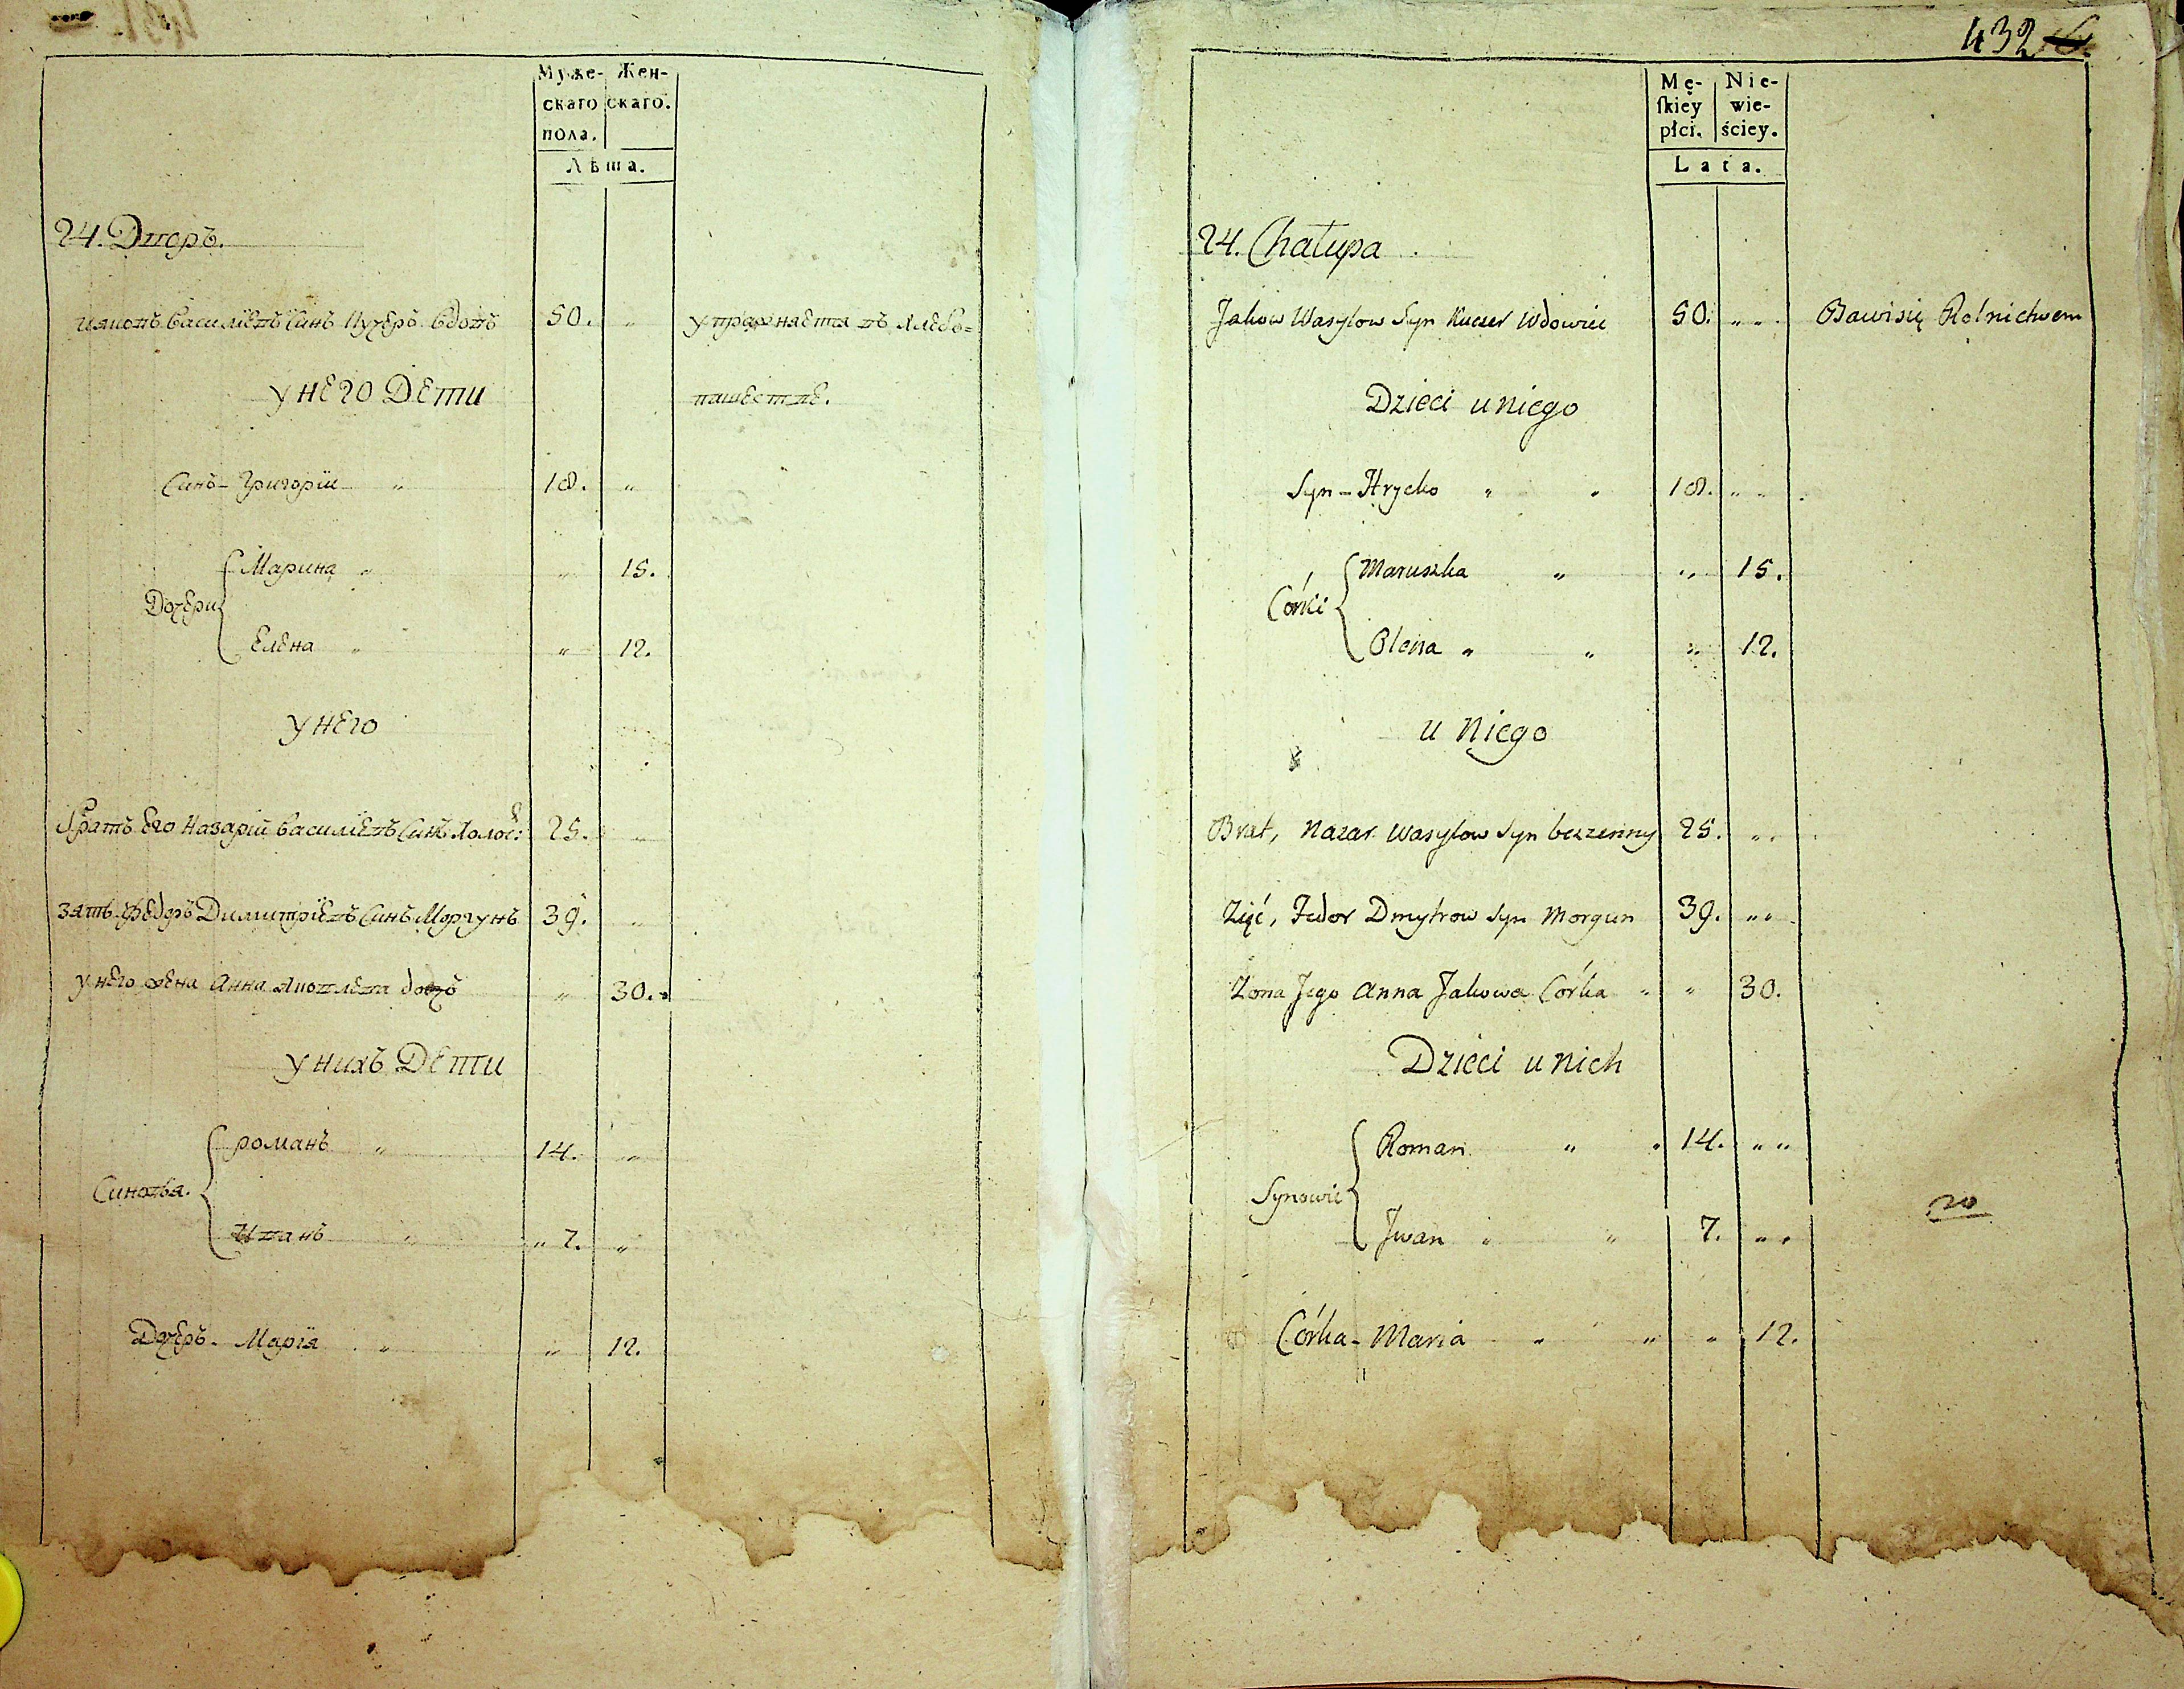 Муже-
скаго
пола.
Жен-
скаго.
Лѣта.
24. Дворъ.
Иаковъ Василіевъ Синъ Кучеръ вдовъ 50. "
упражняется въ хлебо=
пашестве.
у него Дети
Синъ - Григорій " 18. "
Дочери
Марина " " 15.
Елена " " 12.
у него
братъ Его Назарій Василіевъ Синъ холос: 25.
зять Федоръ Димитріевъ Синъ Моргунъ 39. "
у него жена Анна Яковлева дочъ " 30.
у нихъ Дети
Синовья.
романъ " 14. "
Иванъ " " 7. "
Дочеръ - Марія " " 12.
432
Mę-
ſkiey
płci.
Nie-
wie-
ściey.
Lata.
24. Chałupa
Jakow Wasylow Syn Kuczer Wdowiec 50. " " Bawi się Rolnictwem
Dzieci u niego
Syn - Hrycko " " 18. " "
Córki
Maruszka " " 15.
Olena " " " 12.
u niego
Brat, Nazar Wasylow Syn bezzenny 25. " "
Zięć, Fedor Dmytrow Syn Morgun 39. " "
Zona Jego Anna Jakowa Córka " " 30.
Dzieci u nich
Synowie
Roman " " 14. " "
Jwan " " 7. " "
Córka - Maria " " " 12.